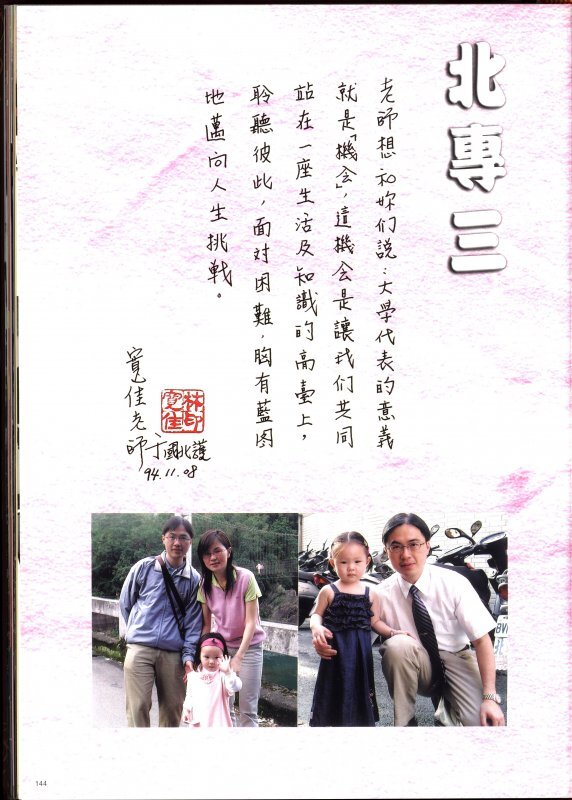 北專三
老師想和妳们說：大學代表的意義
就是「機会」，這機会是讓我们共同
站在一座生活及知識的高臺上，
聆聽彼此，面对困難，胸有藍图
地邁向人生挑戰。
寬佳老師于國北護
94.11.08
林印
寬佳
144